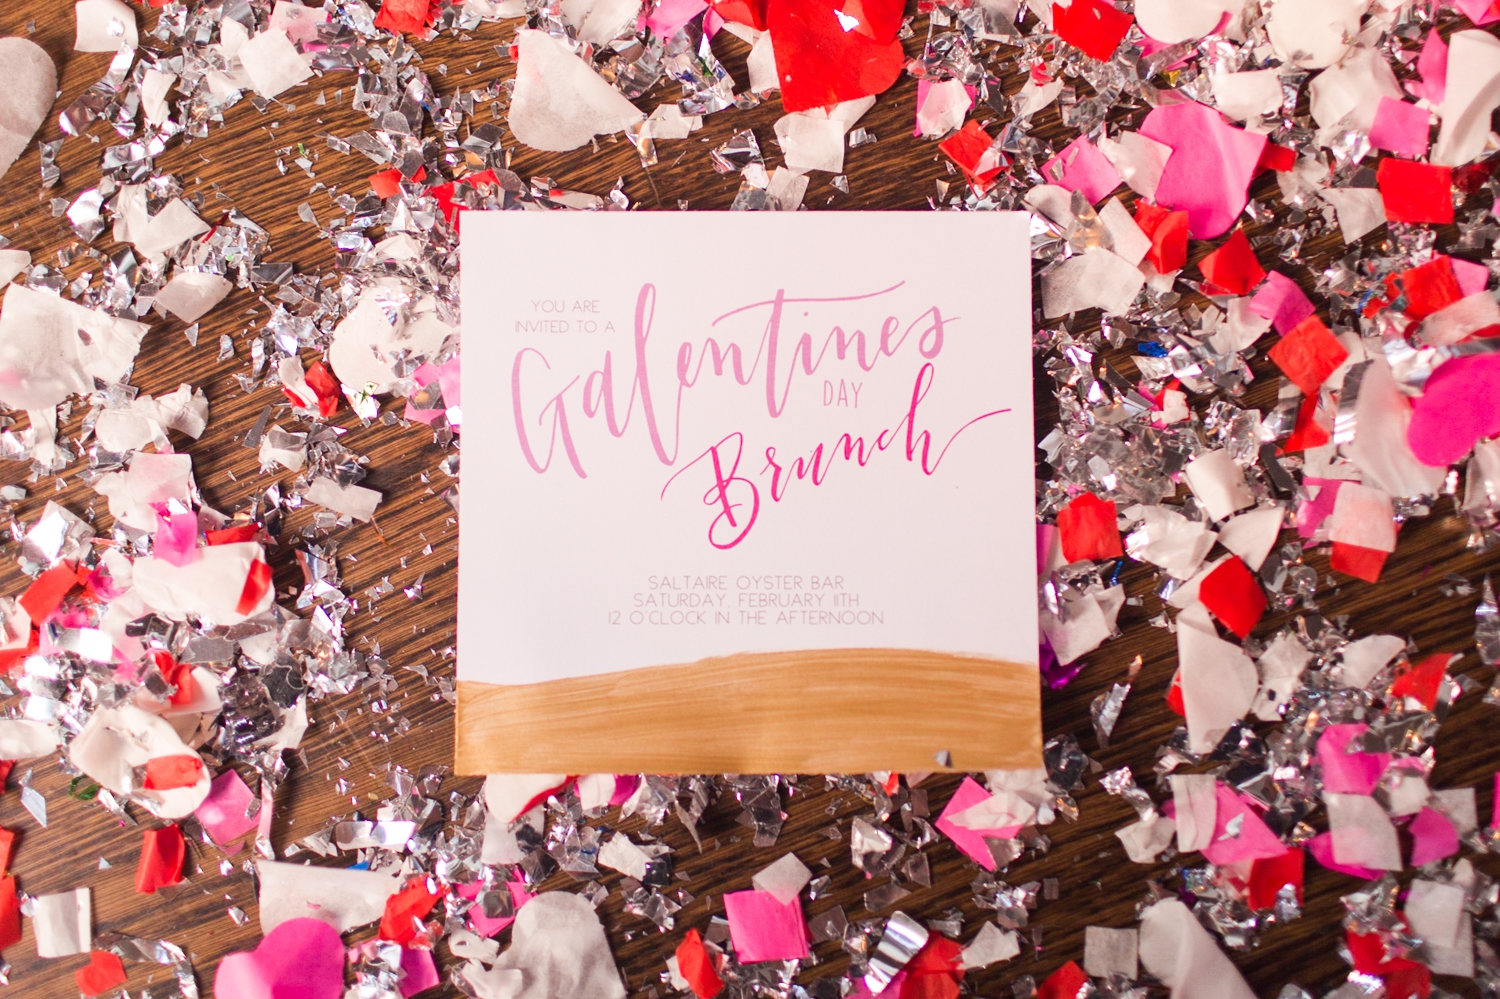 YOU ARE
INVITED TO A
Galentines
DAY
Brunch
SALTAIRE OYSTER BAR
SATURDAY, FEBRUARY 11TH
12 O'CLOCK IN THE AFTERNOON